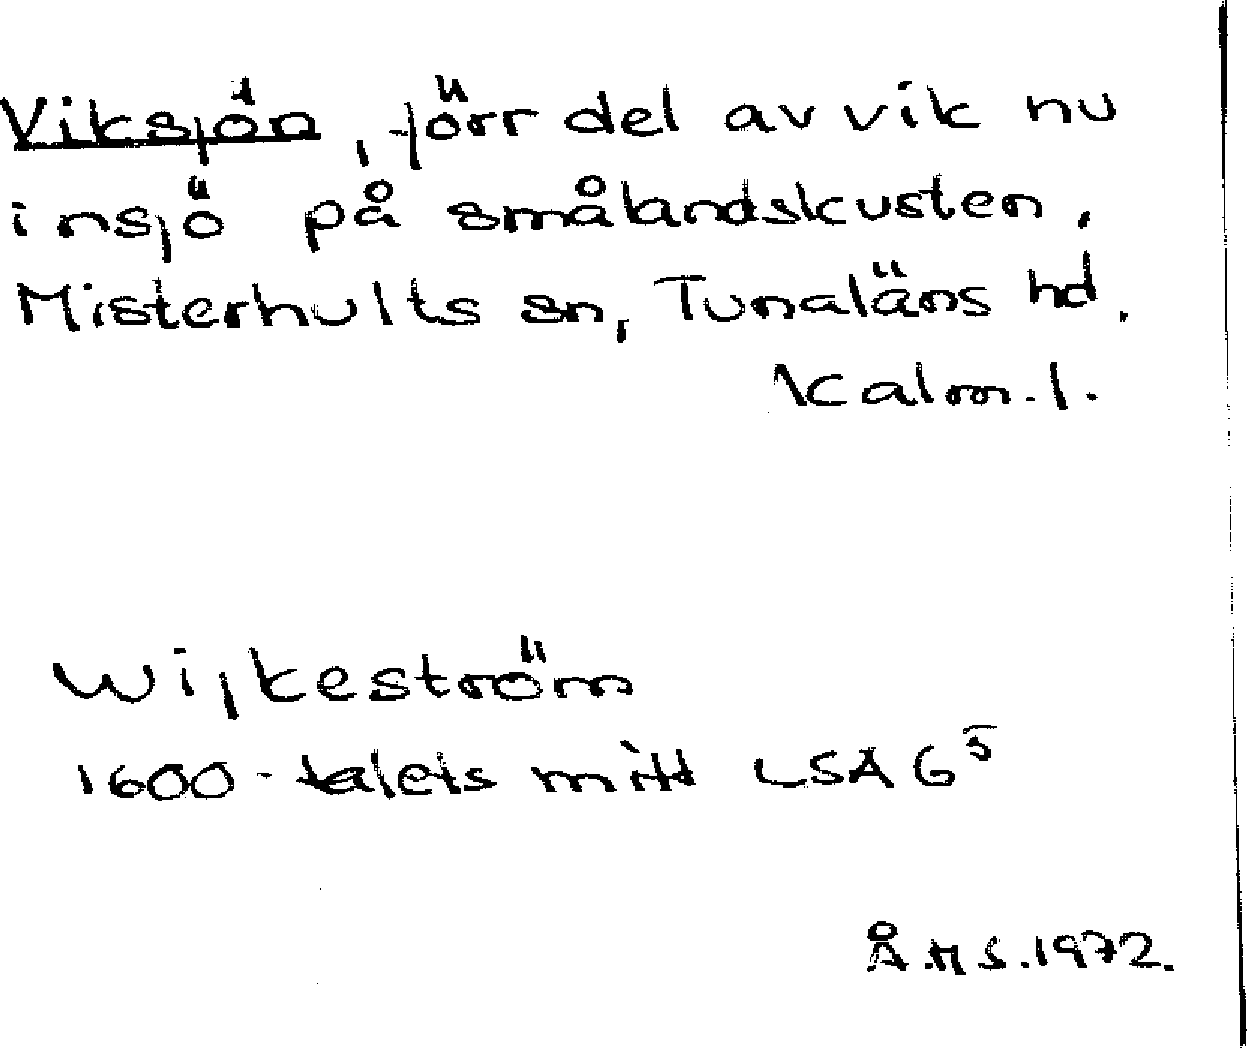 Viksjön, förr del av vik nu
insjö på smålandskusten,
Misterhults sn, Tunaläns hd,
Kalm. l.
Wijkeström
1600-talets mitt LSA G⁵
Å.H.S. 1972.